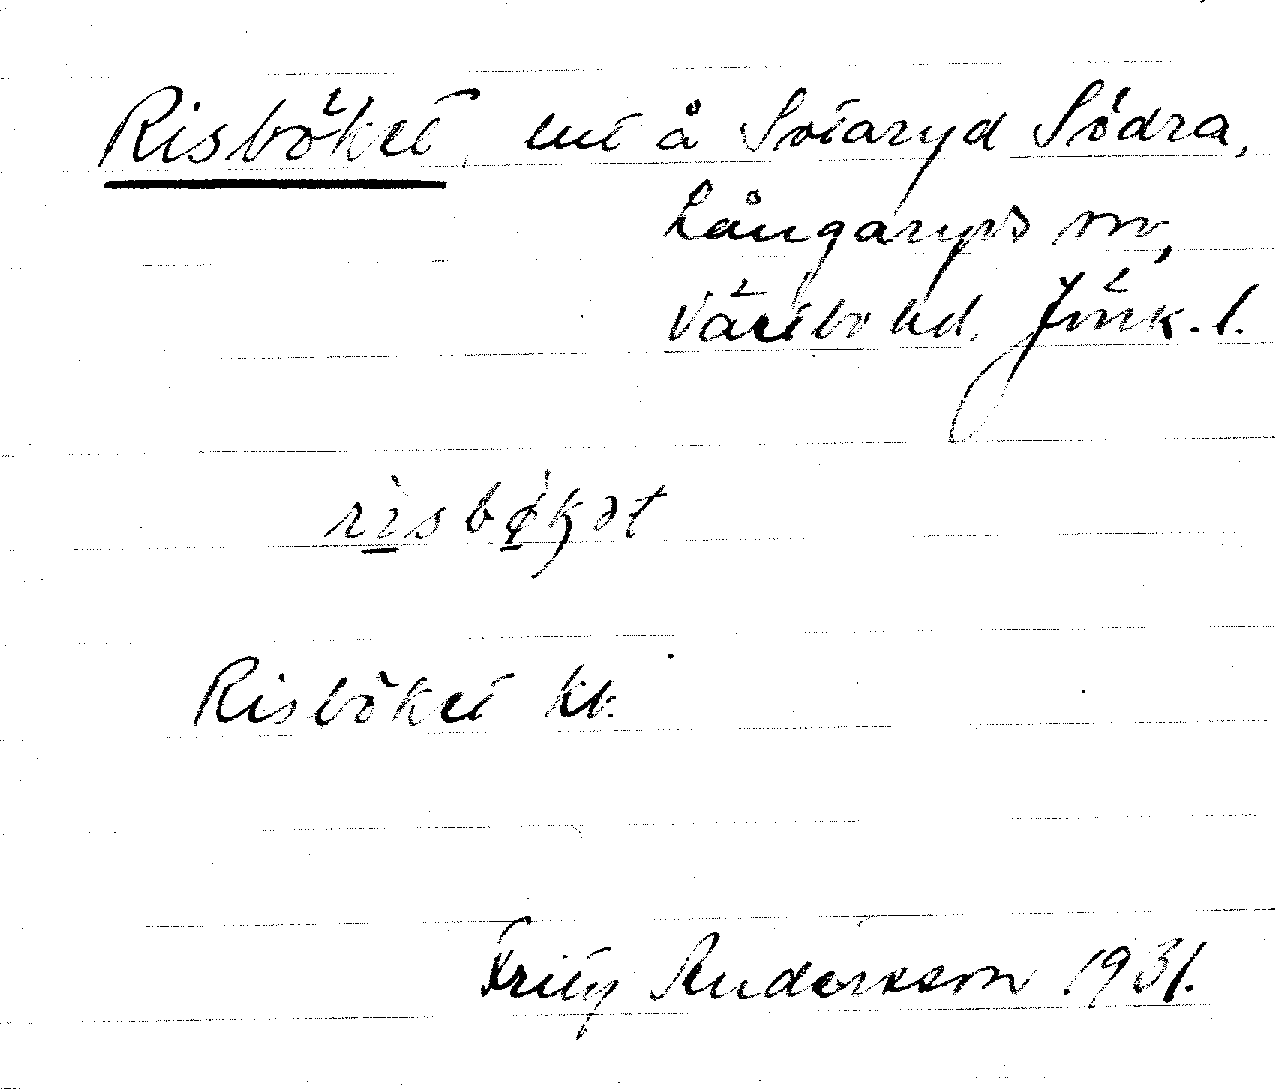 Risböket, lht å Sotaryd Södra,
Långaryds sn,
Västbo hd. Jönk. l.
risbøkət
Risböket kb.
Fritz Andersson 1931.